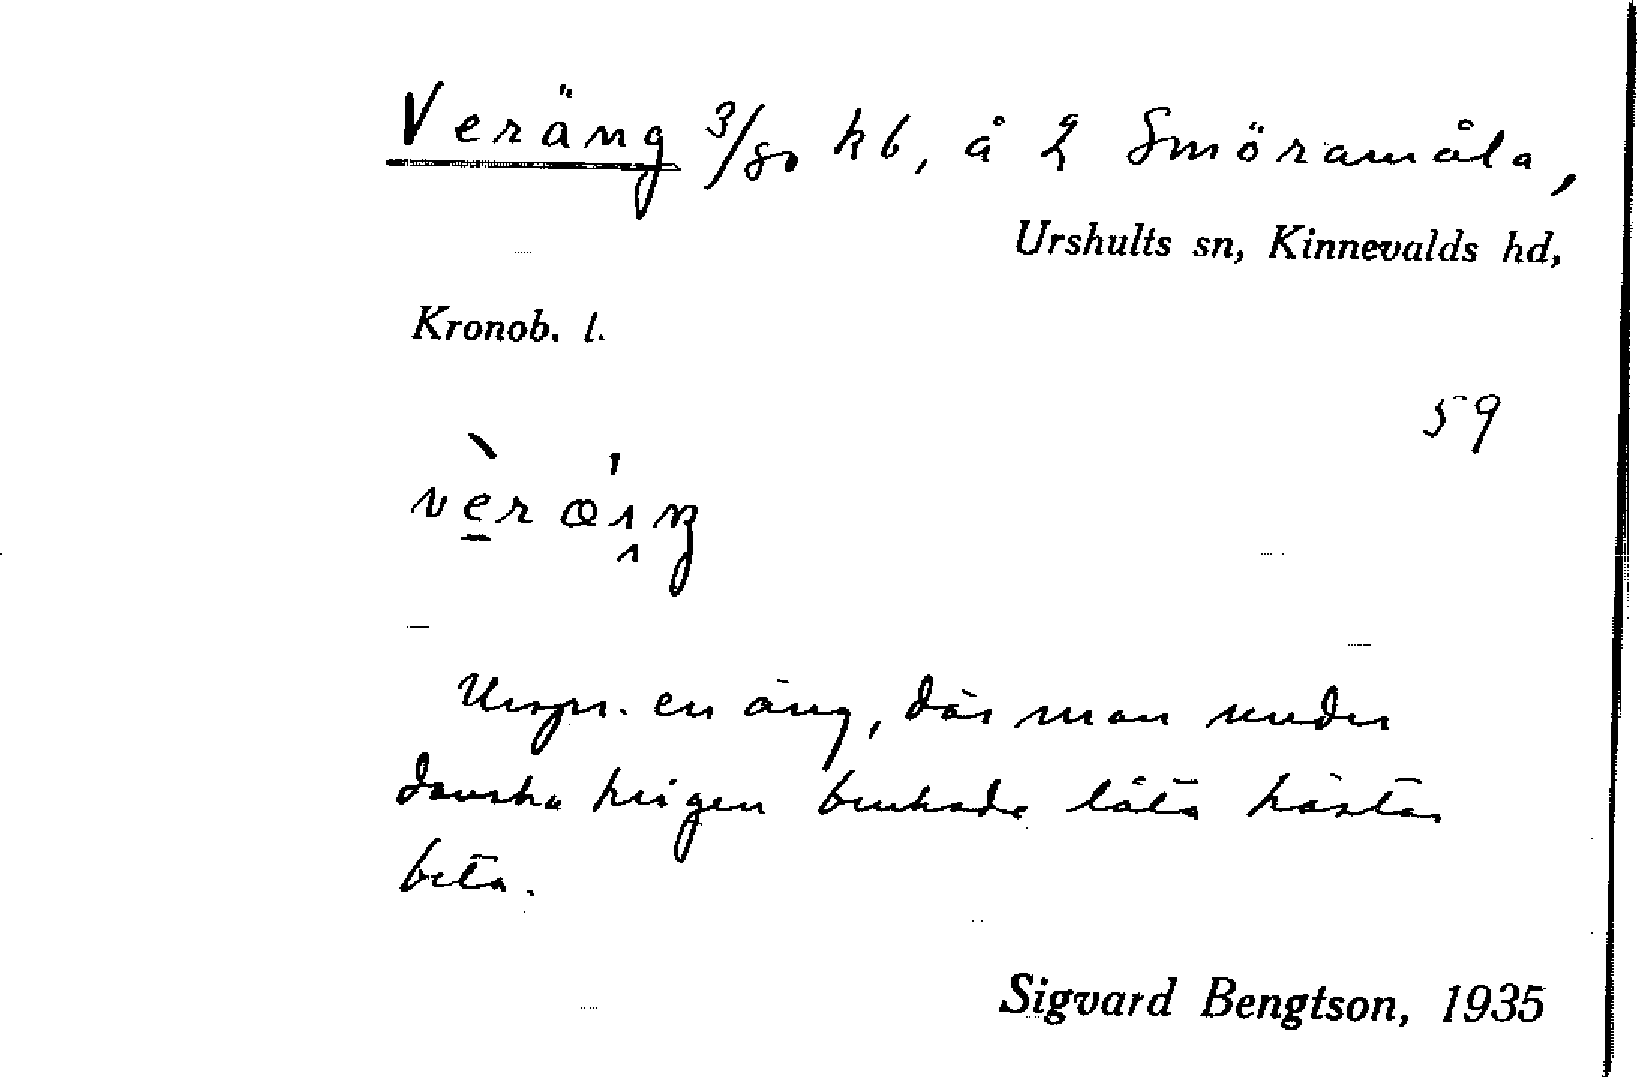 Veräng 3/80 kb, å 2 Smöramåla,
Urshults sn, Kinnevalds hd,
Kronob. l.
59
Urspr. en äng, där man under
danska krigen brukade låta hästar
beta.
Sigvard Bengtson, 1935